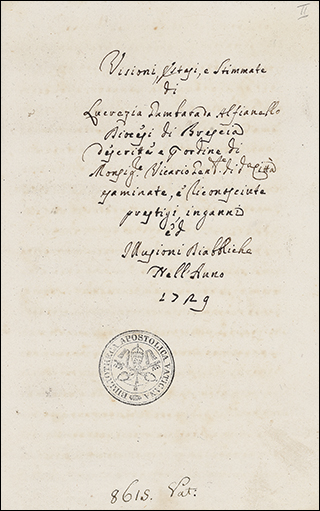 II
Visioni, Estasi, e Stimmate
di
Lucrezia Gambara da Alfianello
Diocesi di Brescia
descritte e d'ordine di
Monsig.re Vicario di d.a Città
saminate, e riconosciute
prestigi inganni
ed
Illusioni Diaboliche
Nell'Anno
1729
BIBLIOTHECA APOSTOLICA VATICANA
8615. Vat.